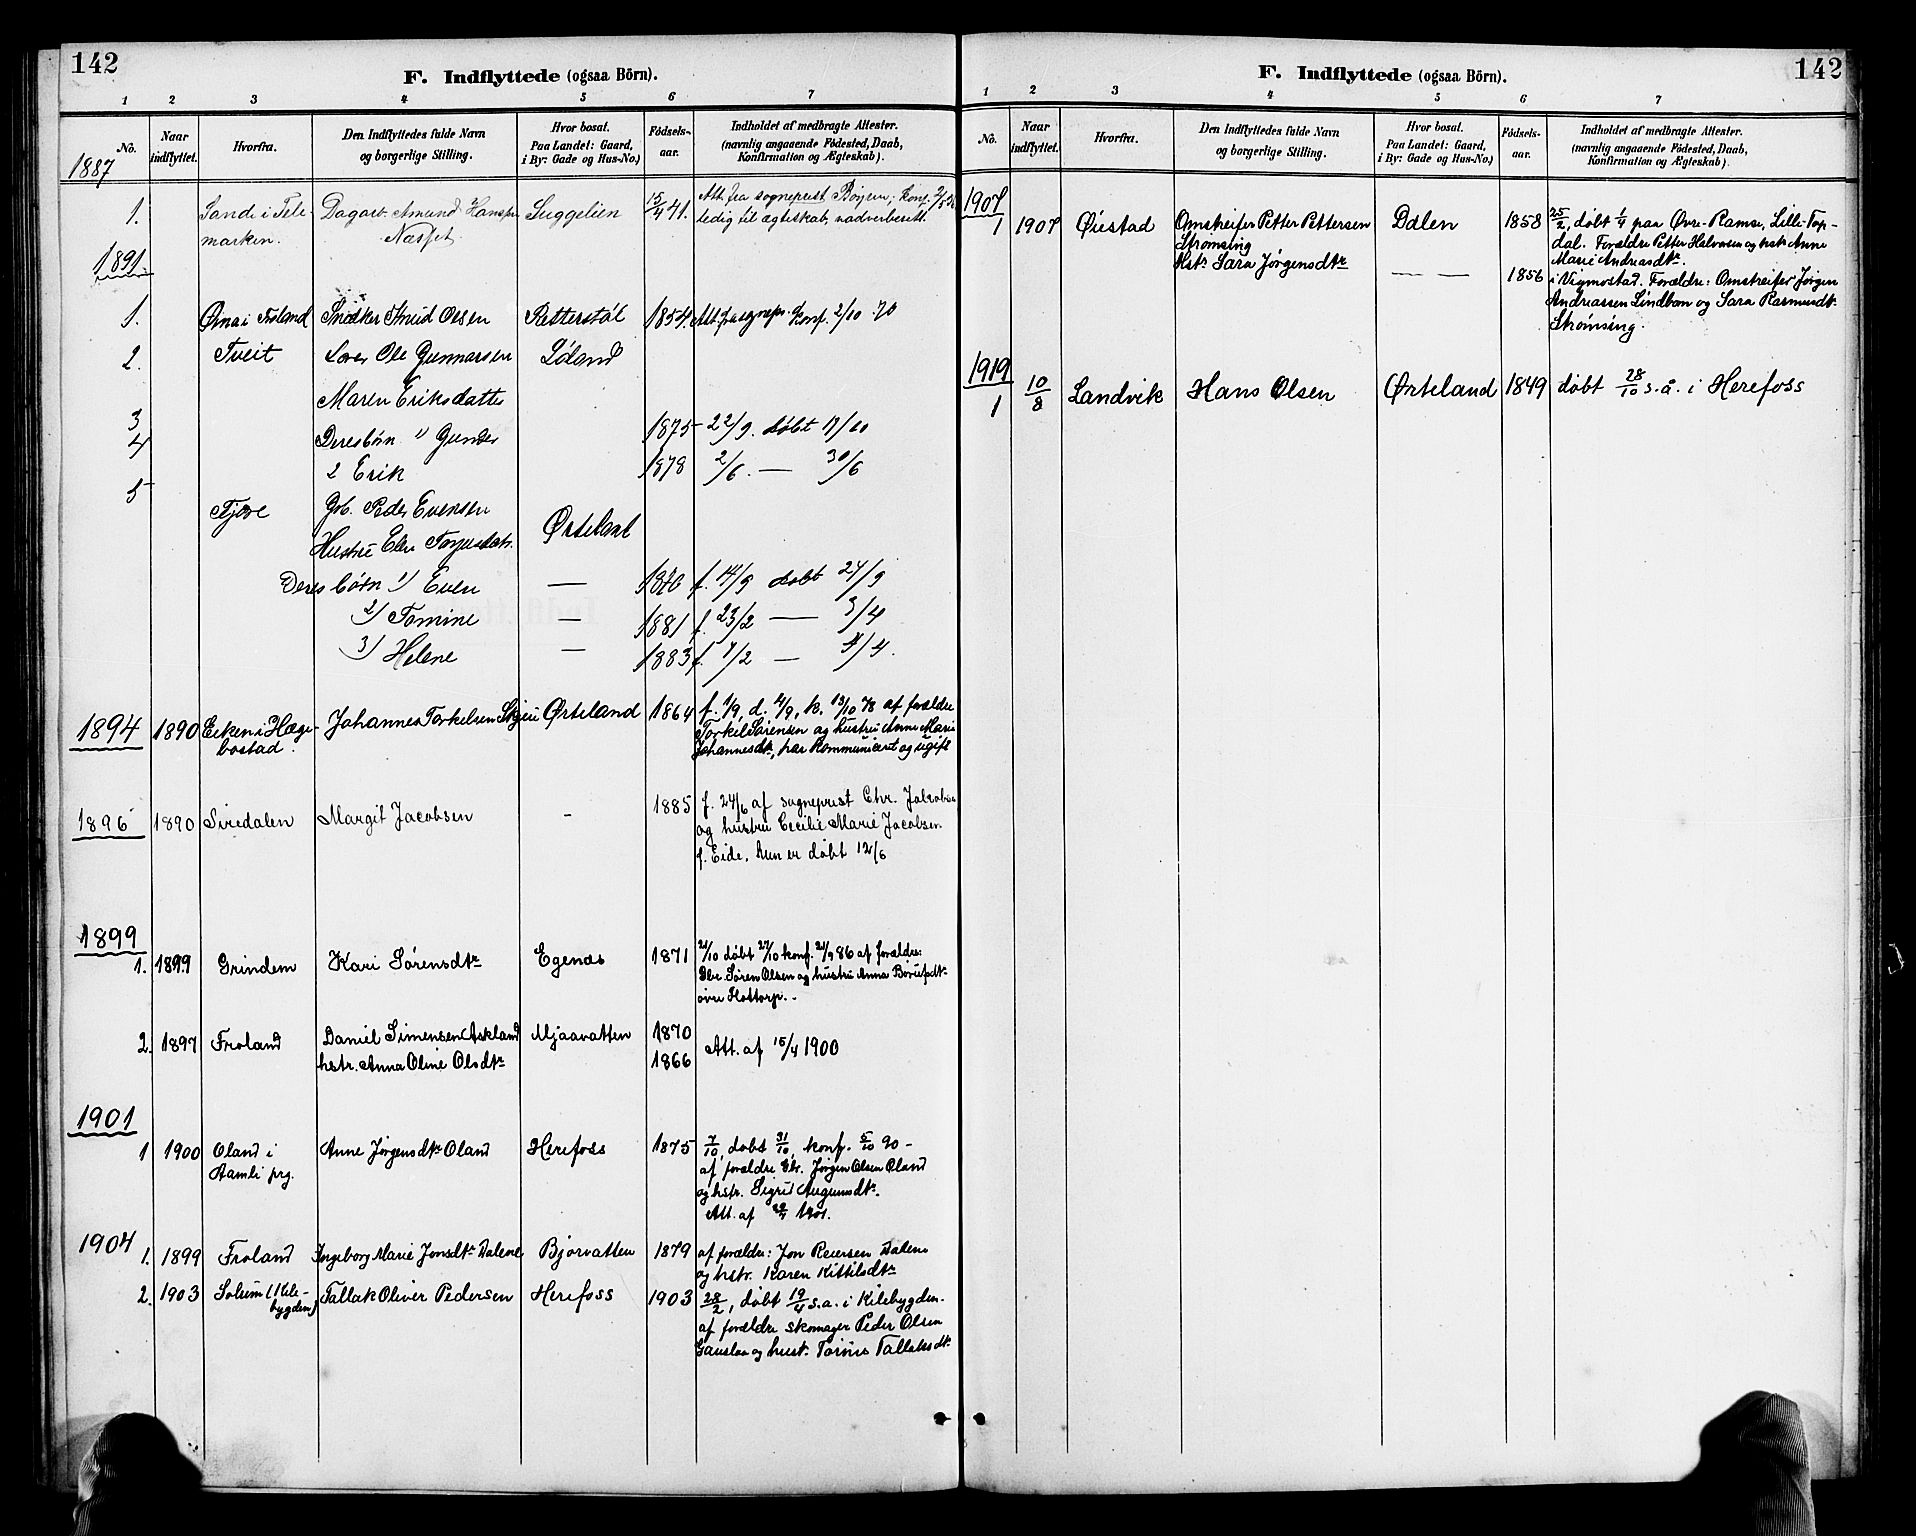 142
F. Indflyttede (ogsaa Börn).
1 2 3 4 5 6 7
No. Naar indflyttet. Hvorfra. Den Indflyttedes fulde Navn og borgerlige Stilling. Hvor bosat. Paa Landet: Gaard, i By: Gade og Hus-No.) Födsels-aar. Indholdet af medbragte Attester. (navnlig angaaende Födested, Daab, Konfirmation og Ægteskab).
1887
1. Sande i Tele- Dagarb. Amund Hanssen Suggelien 15/4 41. Att. fra sogneprest Böyem; konf.
marken. Næsset ledig til ægteskab, nadverberett.
1891
1. Froland Snedker Knud Olsen Retterstøl 1854. Att. fra sognepr. Konf. 2/10 70
2. Tveit Ole Gunnarsen Løland
Maren Eriksdatter
3 Deres börn 1) Gunder 1875 22/9. døbt 17/10
4 2 Erik 1878 2/6. — 30/6
5 Tjøse Gb. Peder Evensen Ørteland
Hustru Torjusdatr.
Deres börn 1) Even — f. 14/9 døbt 24/9
2) Tomine — 1881 f. 23/2 — 3/4
3) Helene — 1883 f. 7/2 — 4/4.
1894 1890 Eiken i Hæge- Johannes Torkelsen Skjeii Ørteland 1864 f. 1/9, d. 4/9, k. 13/10 78 af forældre
bostad. Torkel Sørensen og hustru Anne Marie
Johannesdtr, har kommuniceret og ugift
1896 1890 Siredalen Margit Jacobsen - 1885 f. 24/6 af sogneprest Chr. Jakobsen
og hustru Cecilie Marie Jacobsen
f. Eide. hun er døbt 12/6
1899
1. 1899 Grindem Kari Sørensdtr Egenæs 1871 21/10 døbt 27/10 konf. 21/9 86 af forældre:
Gbr. Søren Olsen og hustru Anna
øvre
2. 1897 Froland Daniel Simensen Askland Mjaavatten 1870
hstr. Anna Oline Olsdtr 1866 Att. af 15/4 1900
1901
1 1900 Oland i Anne Jørgensdtr Oland Herefoss 1875 7/10, døbt 31/10, konf. 5/10 90 -
Aamli prg. af forældre Gbr. Jørgen Olsen Oland
og hstr. Sigrid Augunsdtr.
Att. af 1901.
1904
1. 1899 Froland Ingeborg Marie Jonsdtr Dalene Bjorvatten 1879 af forældre: Jon Reiersen Dalene
og hstr. Karen Kittilsdtr
2. 1903 Solum (Kile- Tallak Oliver Pedersen Herefoss 1903 28/2, døbt 19/4 s.a. i Kilebygden.
bygden) af forældre skomager Peder Olsen
Gauslaa og hust. Tallaksdtr.
142
F. Indflyttede (ogsaa Börn).
1 2 3 4 5 6 7
No. Naar indflyttet. Hvorfra. Den Indflyttedes fulde Navn og borgerlige Stilling. Hvor bosat. Paa Landet: Gaard, i By: Gade og Hus-No.) Födsels-aar. Indholdet af medbragte Attester. (navnlig angaaende Födested, Daab, Konfirmation og Ægteskab).
1907
1 1907 Øiestad Omstreifer Petter Pettersen Dalen 1858 25/2, døbt 1/4 paa Øvre-Ramse, Lille-Top-
Strømsing dal. Forældre Petter Halvorsen og hstr Anne
Marie Andreasdtr
Hstr Sara Jørgensdtr — — 1856 i Vigmostad. Forældre: Omstreifer Jørgen
Andreassen Lindbom og Sara Rasmusdtr.
Strømsing.
1919
1 10/8 Landvik Hans Olsen Ørteland 1849 døbt 28/10 s.å. i Herefoss